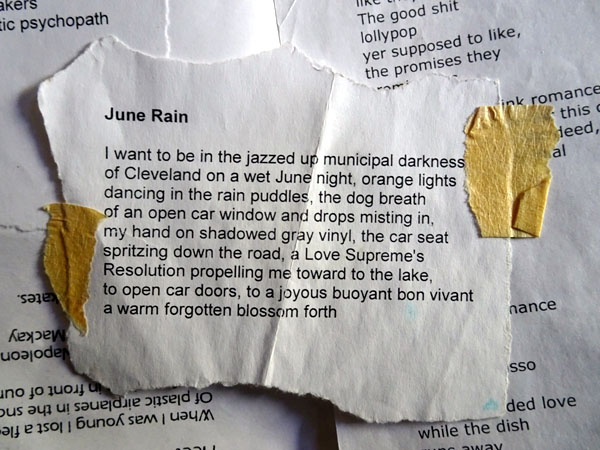 akers
tic psychopath
The good shit
lollypop
yer supposed to like,
the promises they
June Rain
I want to be in the jazzed up municipal darkness
of Cleveland on a wet June night, orange lights
dancing in the rain puddles, the dog breath
of an open car window and drops misting in,
my hand on shadowed gray vinyl, the car seat
spritzing down the road, a Love Supreme's
Resolution propelling me toward to the lake,
to open car doors, to a joyous buoyant bon vivant
a warm forgotten blossom forth
ink romance
this
deed,
al
nance
sso
ded love
while the dish
runs away
kates.
Mackay
apoleon
in front of our
of plastic airplanes in the
When I was young I lost a